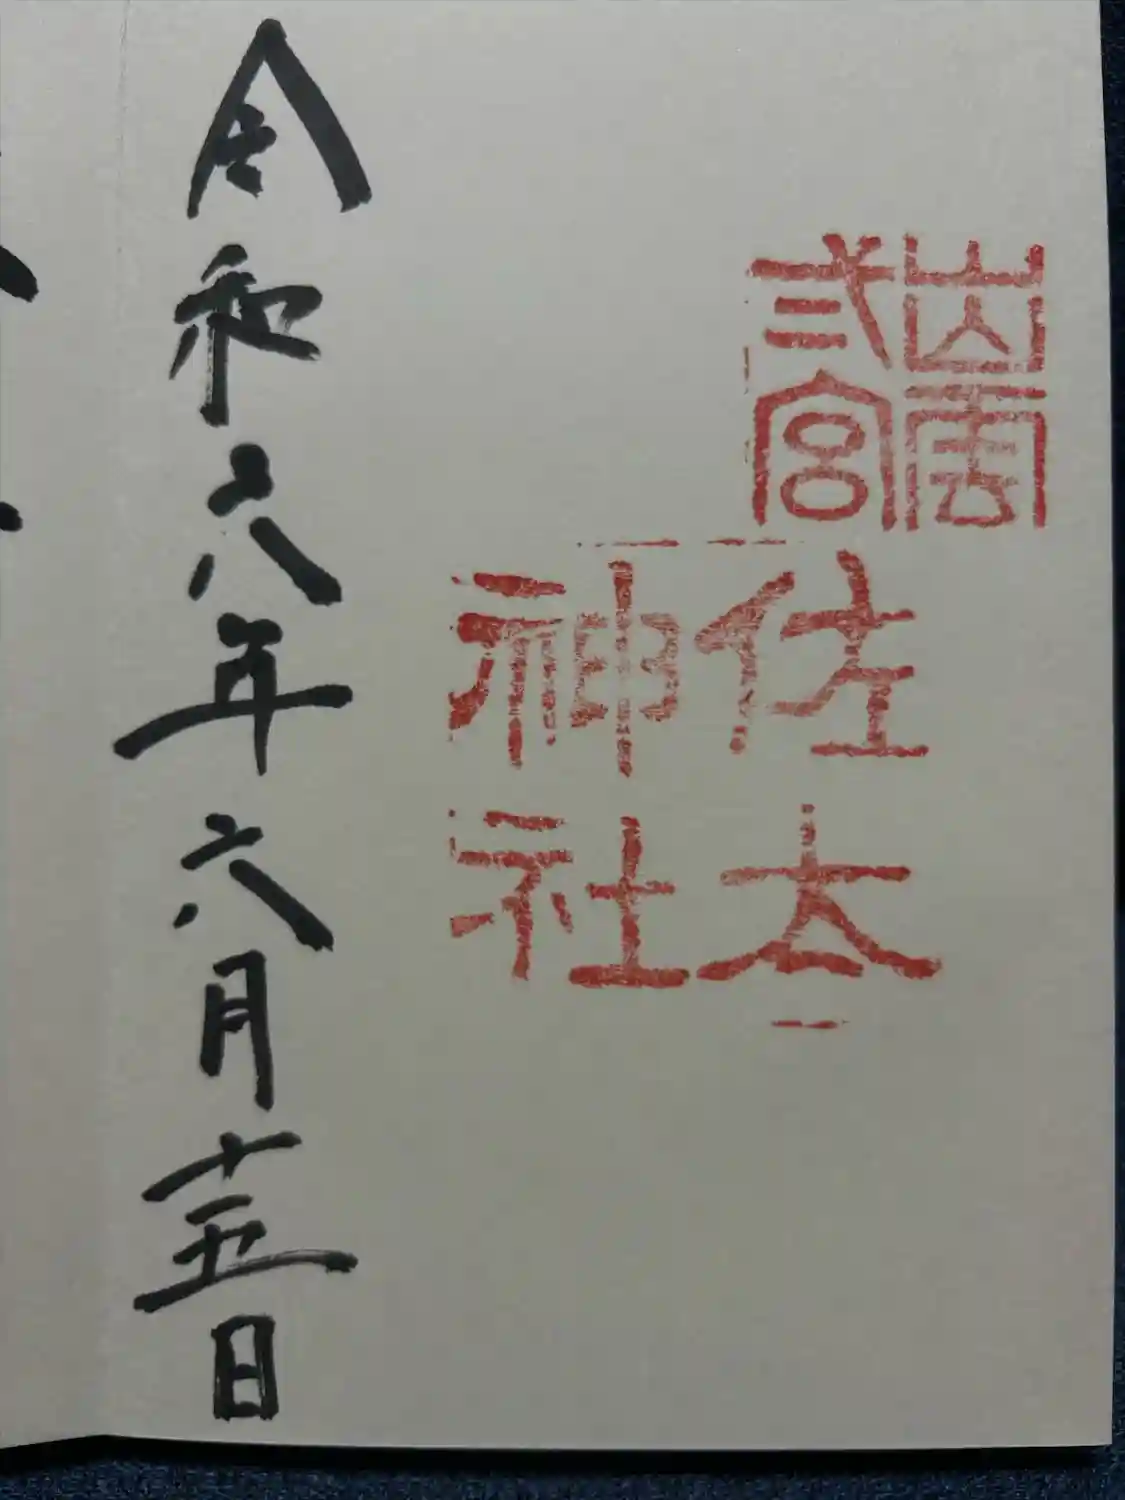 出雲
弐宮
佐太
神社
令和六年六月十五日